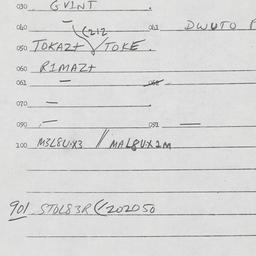 030 GVINT .
040 — (212 041 DWUTO
050 TOKAZt TOKE .
060 RIMAZt
061 —
070 — .
090 — 091 —
100 M3L8UX3 // MAL8UX1M
901 STOL83R (/202050